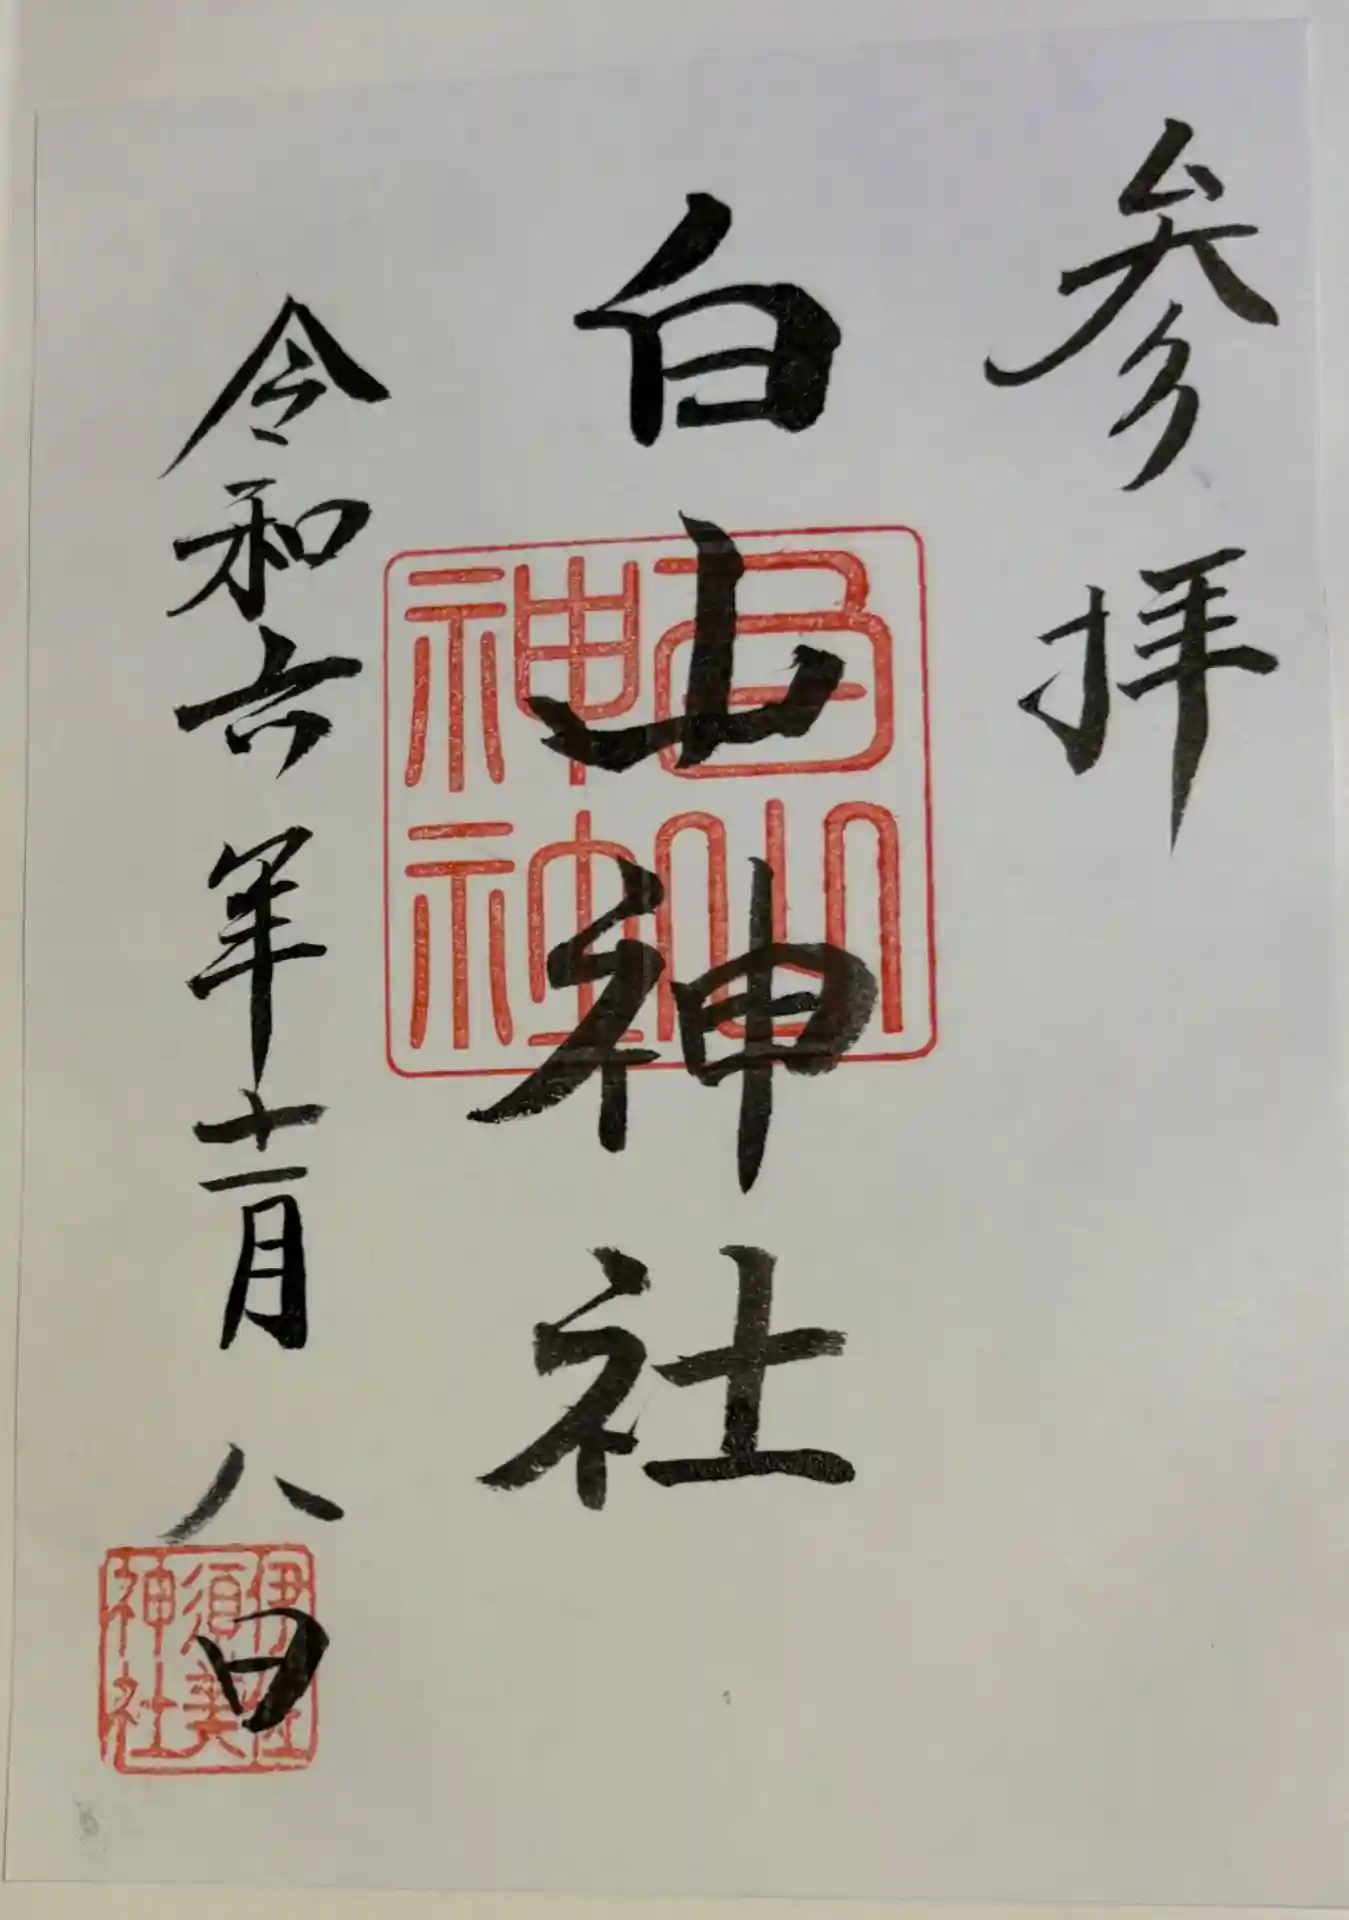 参拝
白山神社
白山神社
令和六年十一月八日
伊佐須美神社